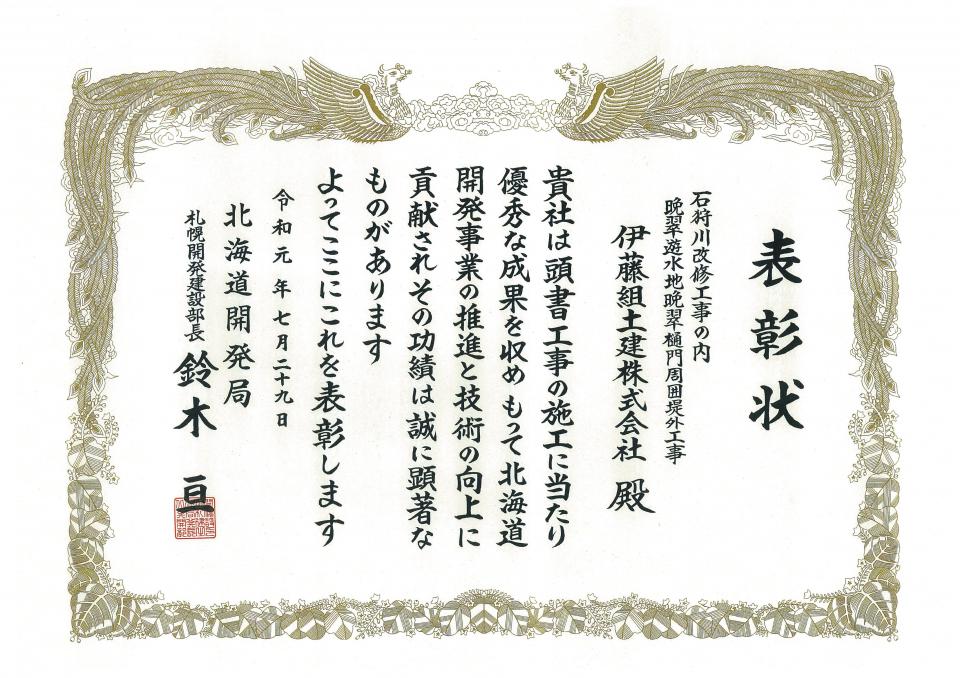 表彰状
石狩川改修工事の内
晩翠遊水地晩翠樋門周囲堤外工事
伊藤組土建株式会社 殿
貴社は頭書工事の施工に当たり
優秀な成果を収め もって北海道
開発事業の推進と技術の向上に
貢献されその功績は誠に顕著な
ものがあります
よってここにこれを表彰します
令和元年七月二十九日
北海道開発局
札幌開発建設部長 鈴木 亘